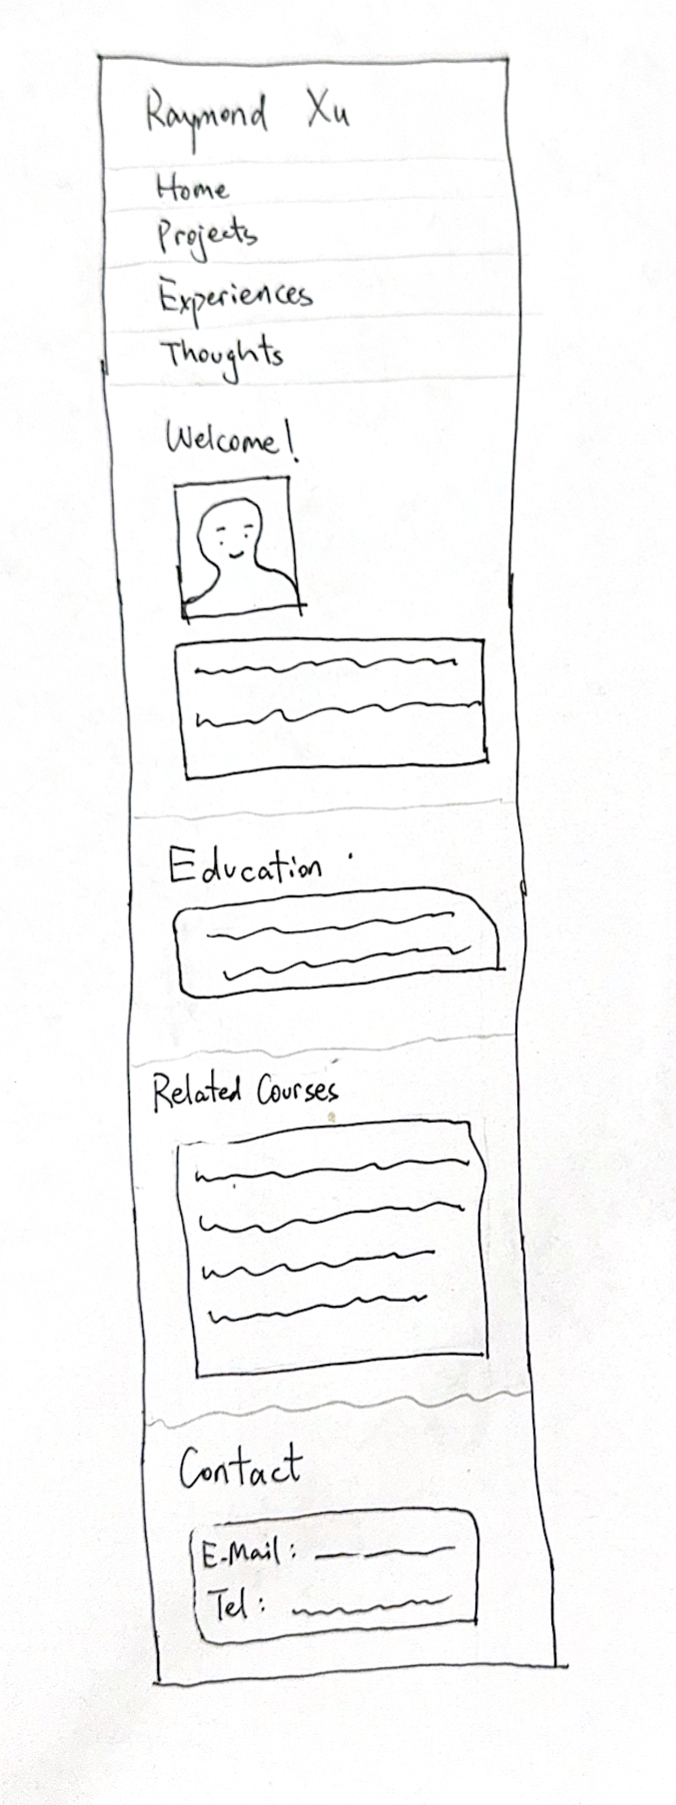 Raymond Xu
Home
Projects
Experiences
Thoughts
Welcome!
Education
Related Courses
Contact
E-Mail:
Tel: